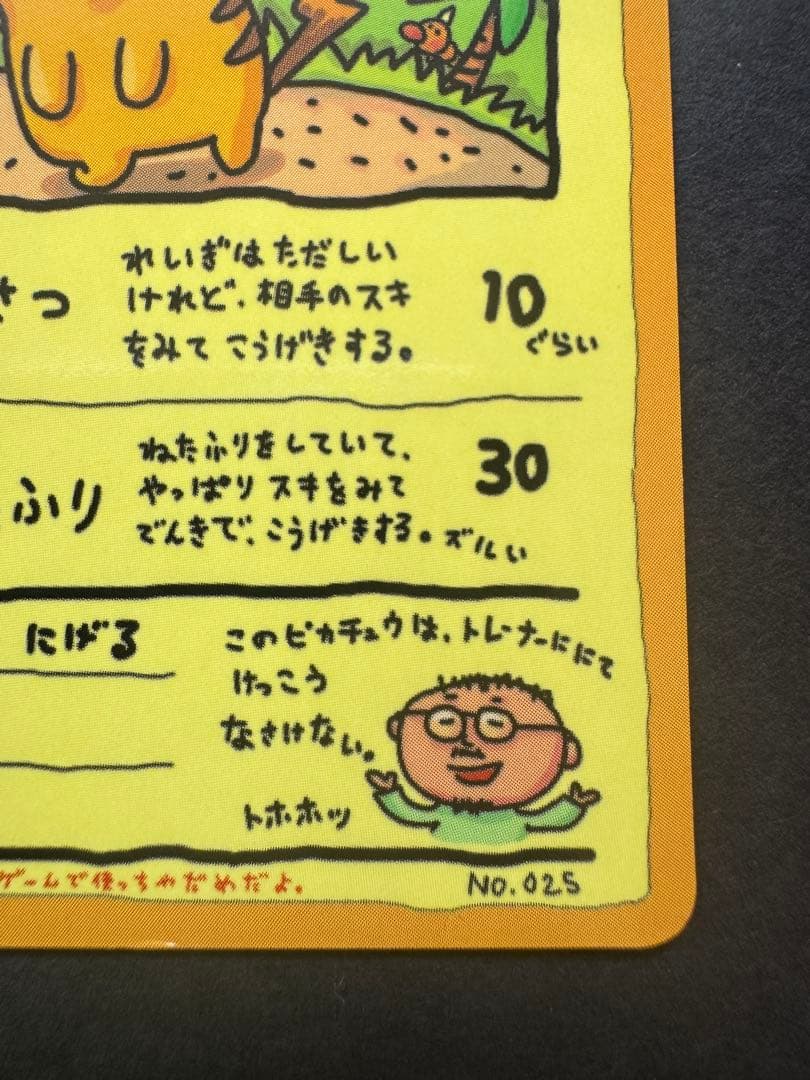 さつ
れいぎはただしい
けれど、相手のスキ
をみてこうげきする。
10
ぐらい
ふり
ねたふりをしていて、
やっぱりスキをみて
でんきで、こうげきする。ズルい
30
にげる
このピカチュウは、トレーナーににて
けっこう
なさけない。
トホホッ
ゲームで使っちゃだめだよ。
NO. 025